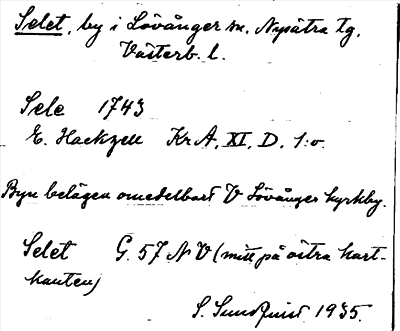 Selet, by i Lövånger sn. Nysätra tg.
Västerb. l.
Sele 1743
E. Hackzell Kr A, XI, D, 1:o.
Byn belägen omedelbart V Lövånger kyrkby.
Selet G. 57 N V (mitt på östra kart-
kanten)
S. Sundquist 1935.